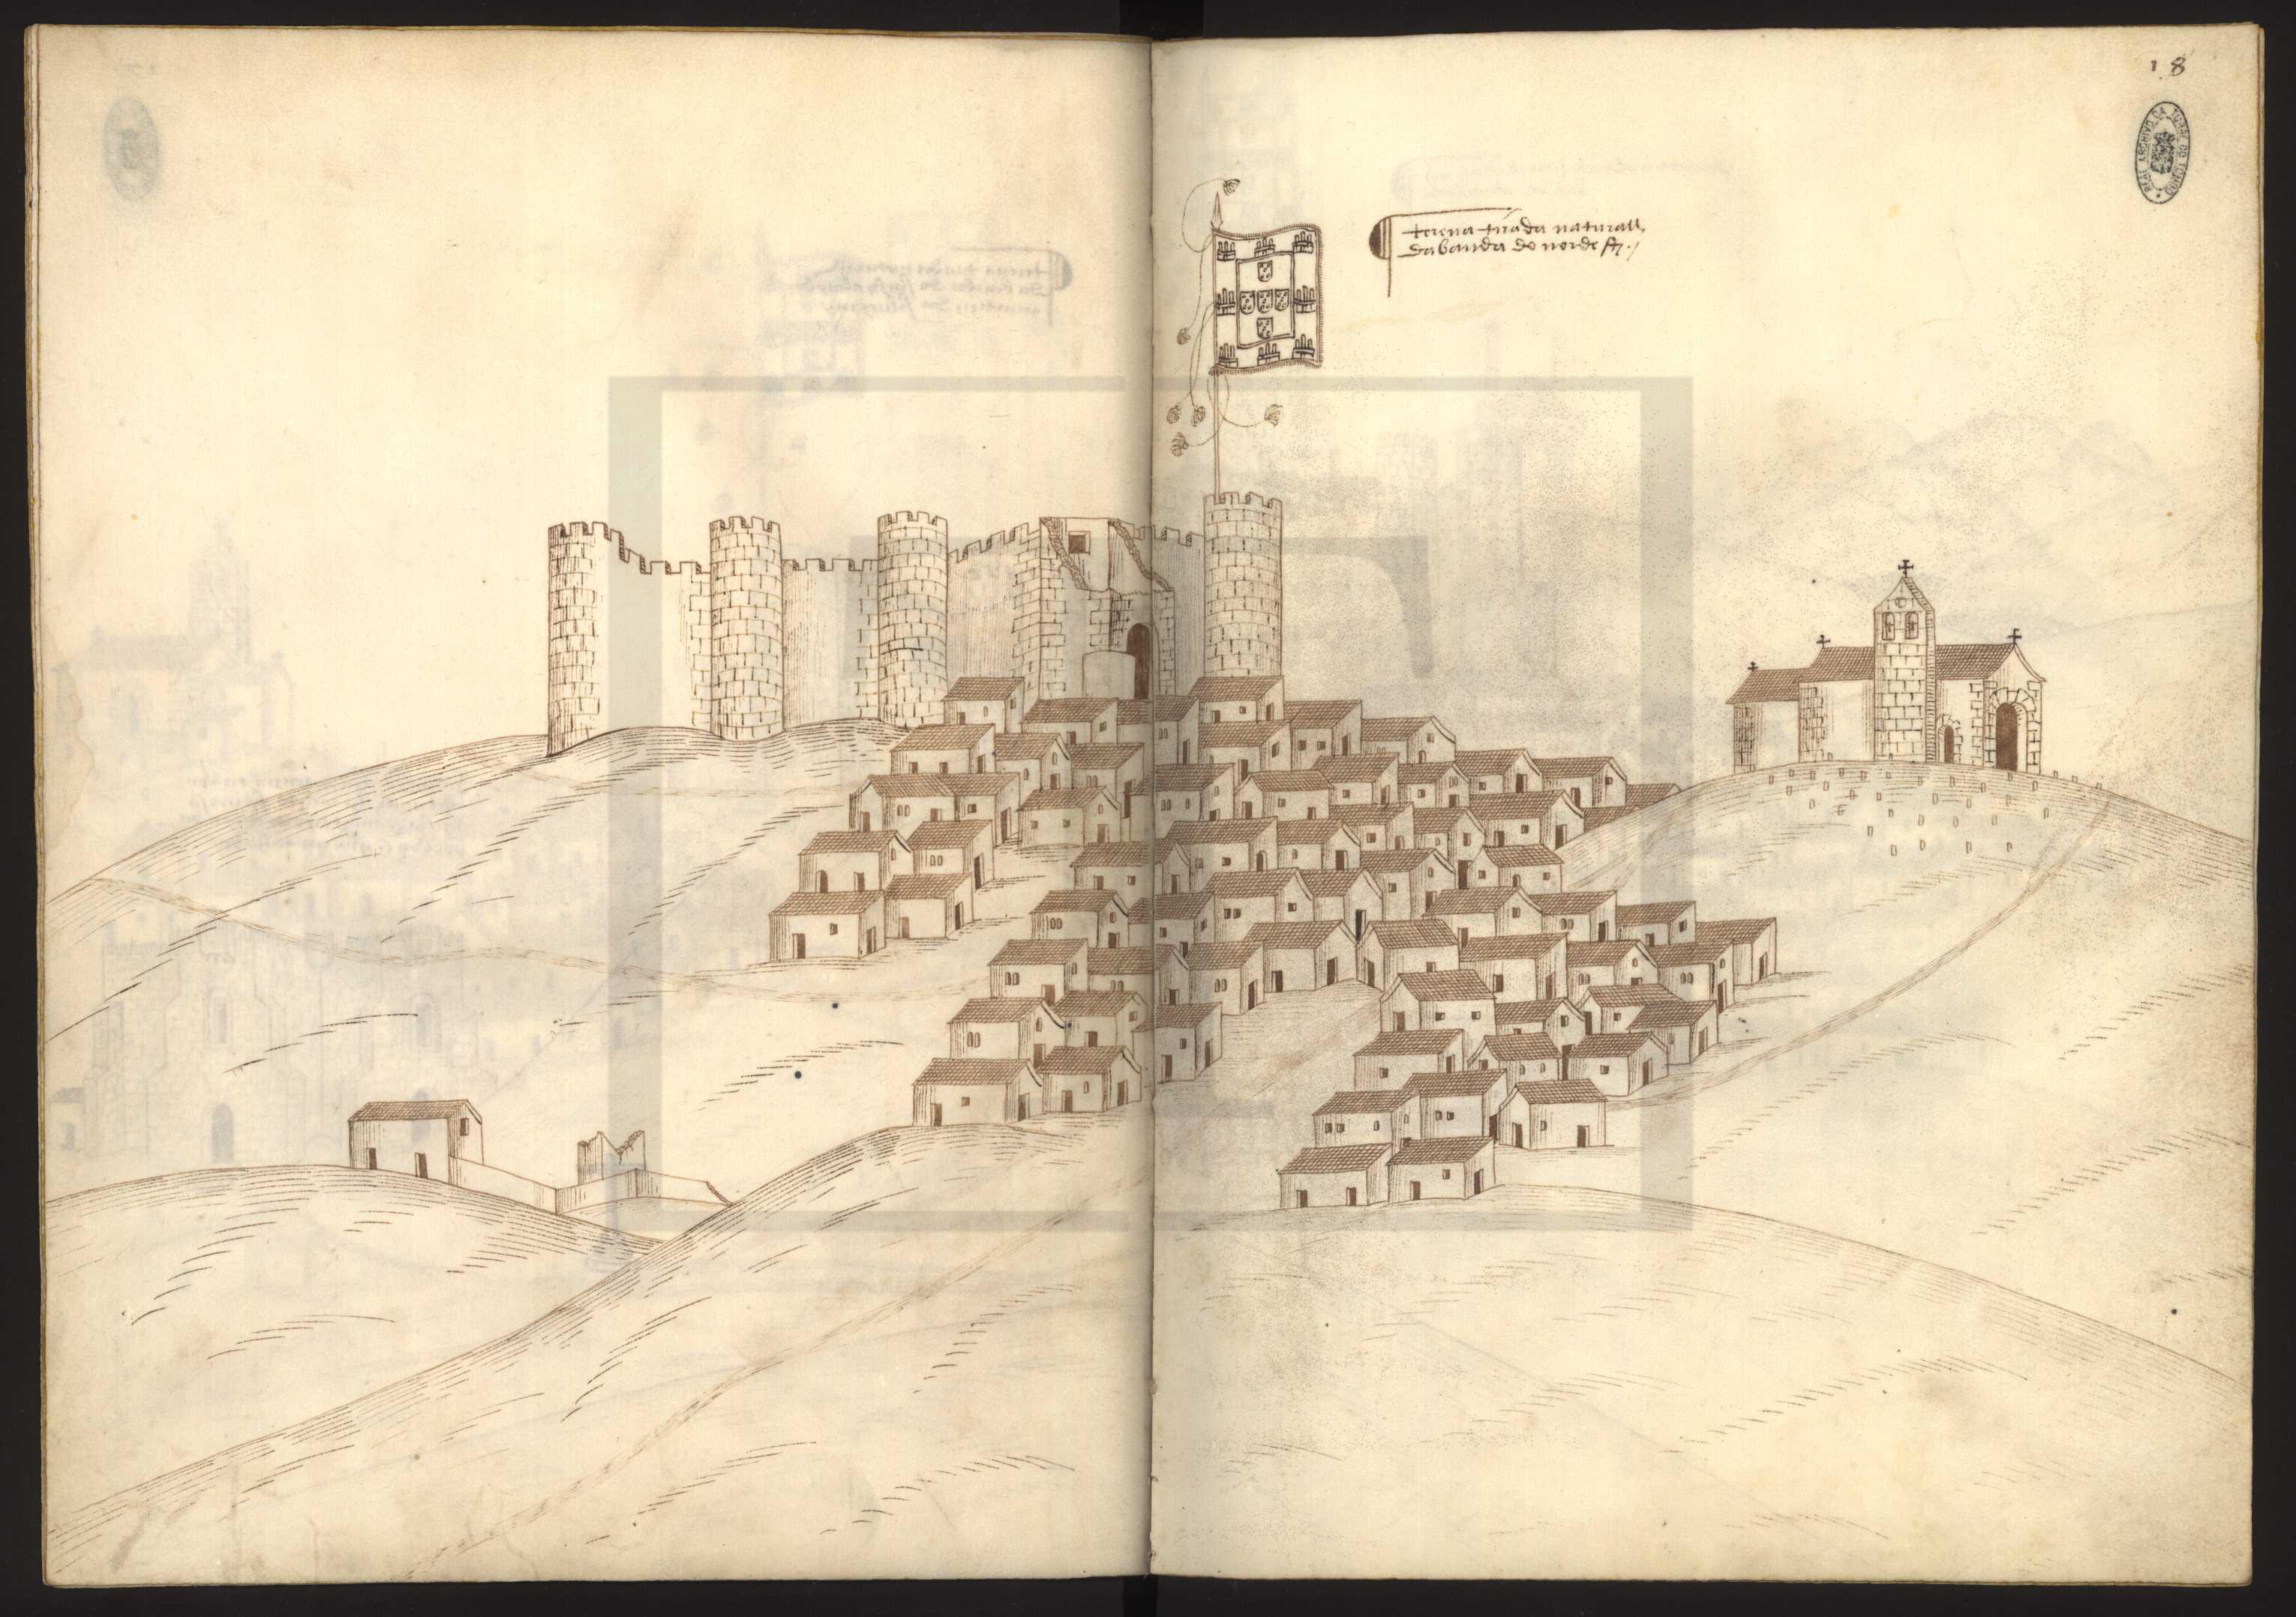 18
REAL ARCHIVO DA TORRE DO TOMBO
terena tirada naturall
da banda do nordeste